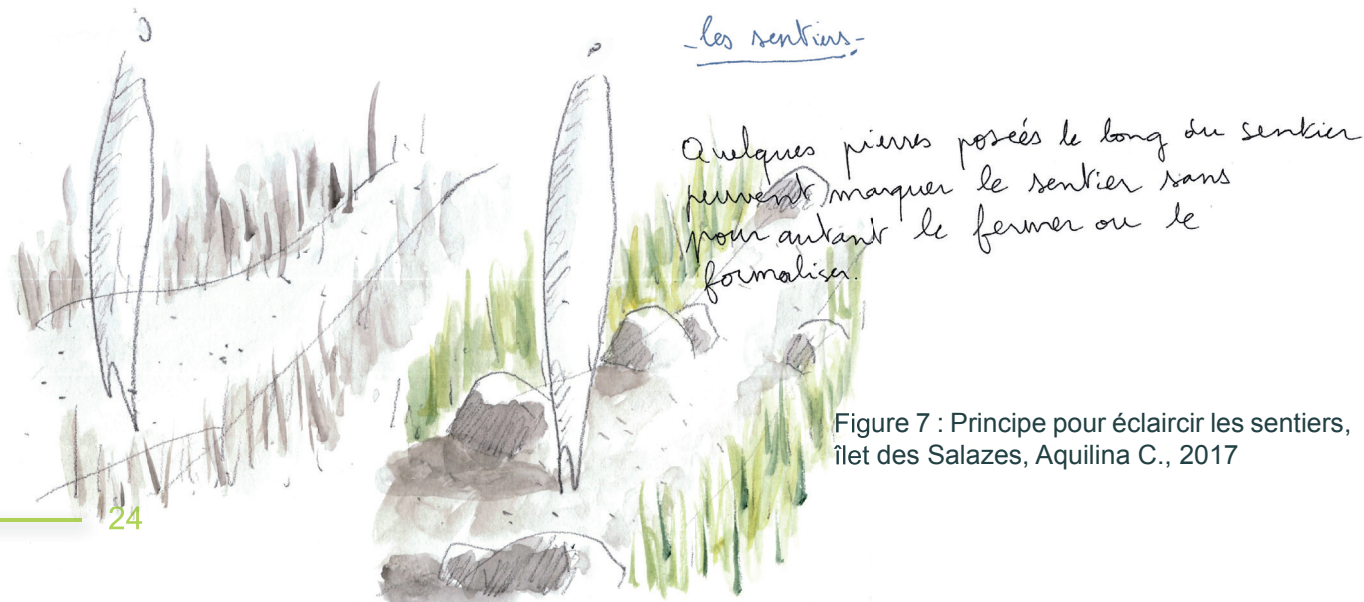 - les sentiers -
Quelques pierres posées le long du sentier
peuvent marquer le sentier sans
pour autant le fermer ou le
formaliser.
Figure 7 : Principe pour éclaircir les sentiers,
îlet des Salazes, Aquilina C., 2017
24